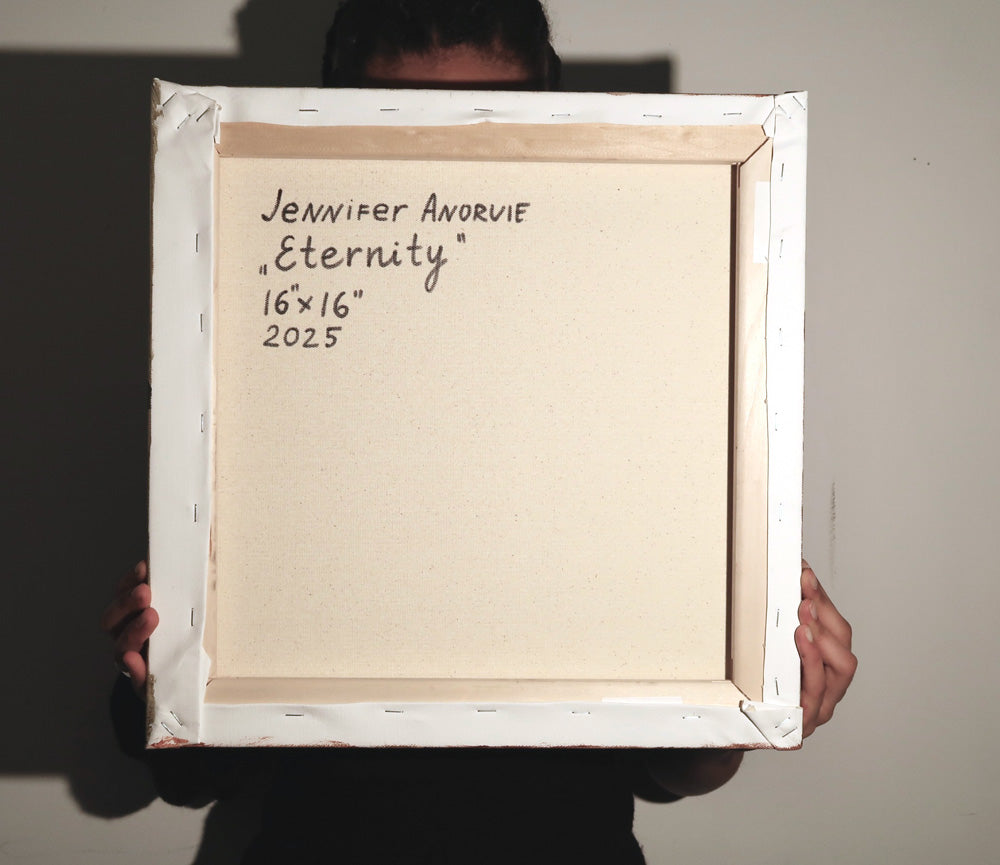 Jennifer Anorue
„Eternity"
16"x16"
2025